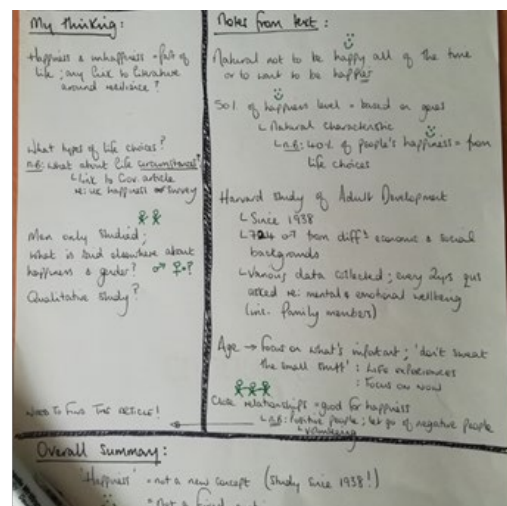 My thinking:
Happiness & unhappiness = part of
life; any link to literature
around resilience?
What types of life choices?
n.B: what about life circumstances?
↳ link to Gov. article
re: UK happiness survey
Men only studied;
what is said elsewhere about
happiness & gender? ♂ ♀?
Qualitative study?
NEED TO FIND THE ARTICLE!
Notes from text:
Natural not to be happy all of the time
or to want to be happier
50% of happiness level = based on genes
↳ Natural characteristic
↳ n.B: 40% of people's happiness = from
life choices
Harvard study of Adult Development
↳ Since 1938
↳ 724 ♂ from diff't economic & social
backgrounds
↳ Various data collected; every 2yrs qus
asked re: mental & emotional wellbeing
(inc. family members)
Age → focus on what's important; 'don't sweat
the small stuff' : Life experiences
: Focus on now
Close relationships = good for happiness
↳ n.B: Positive people; let go of negative people
Overall Summary:
'Happiness' = not a new concept (study since 1938!)